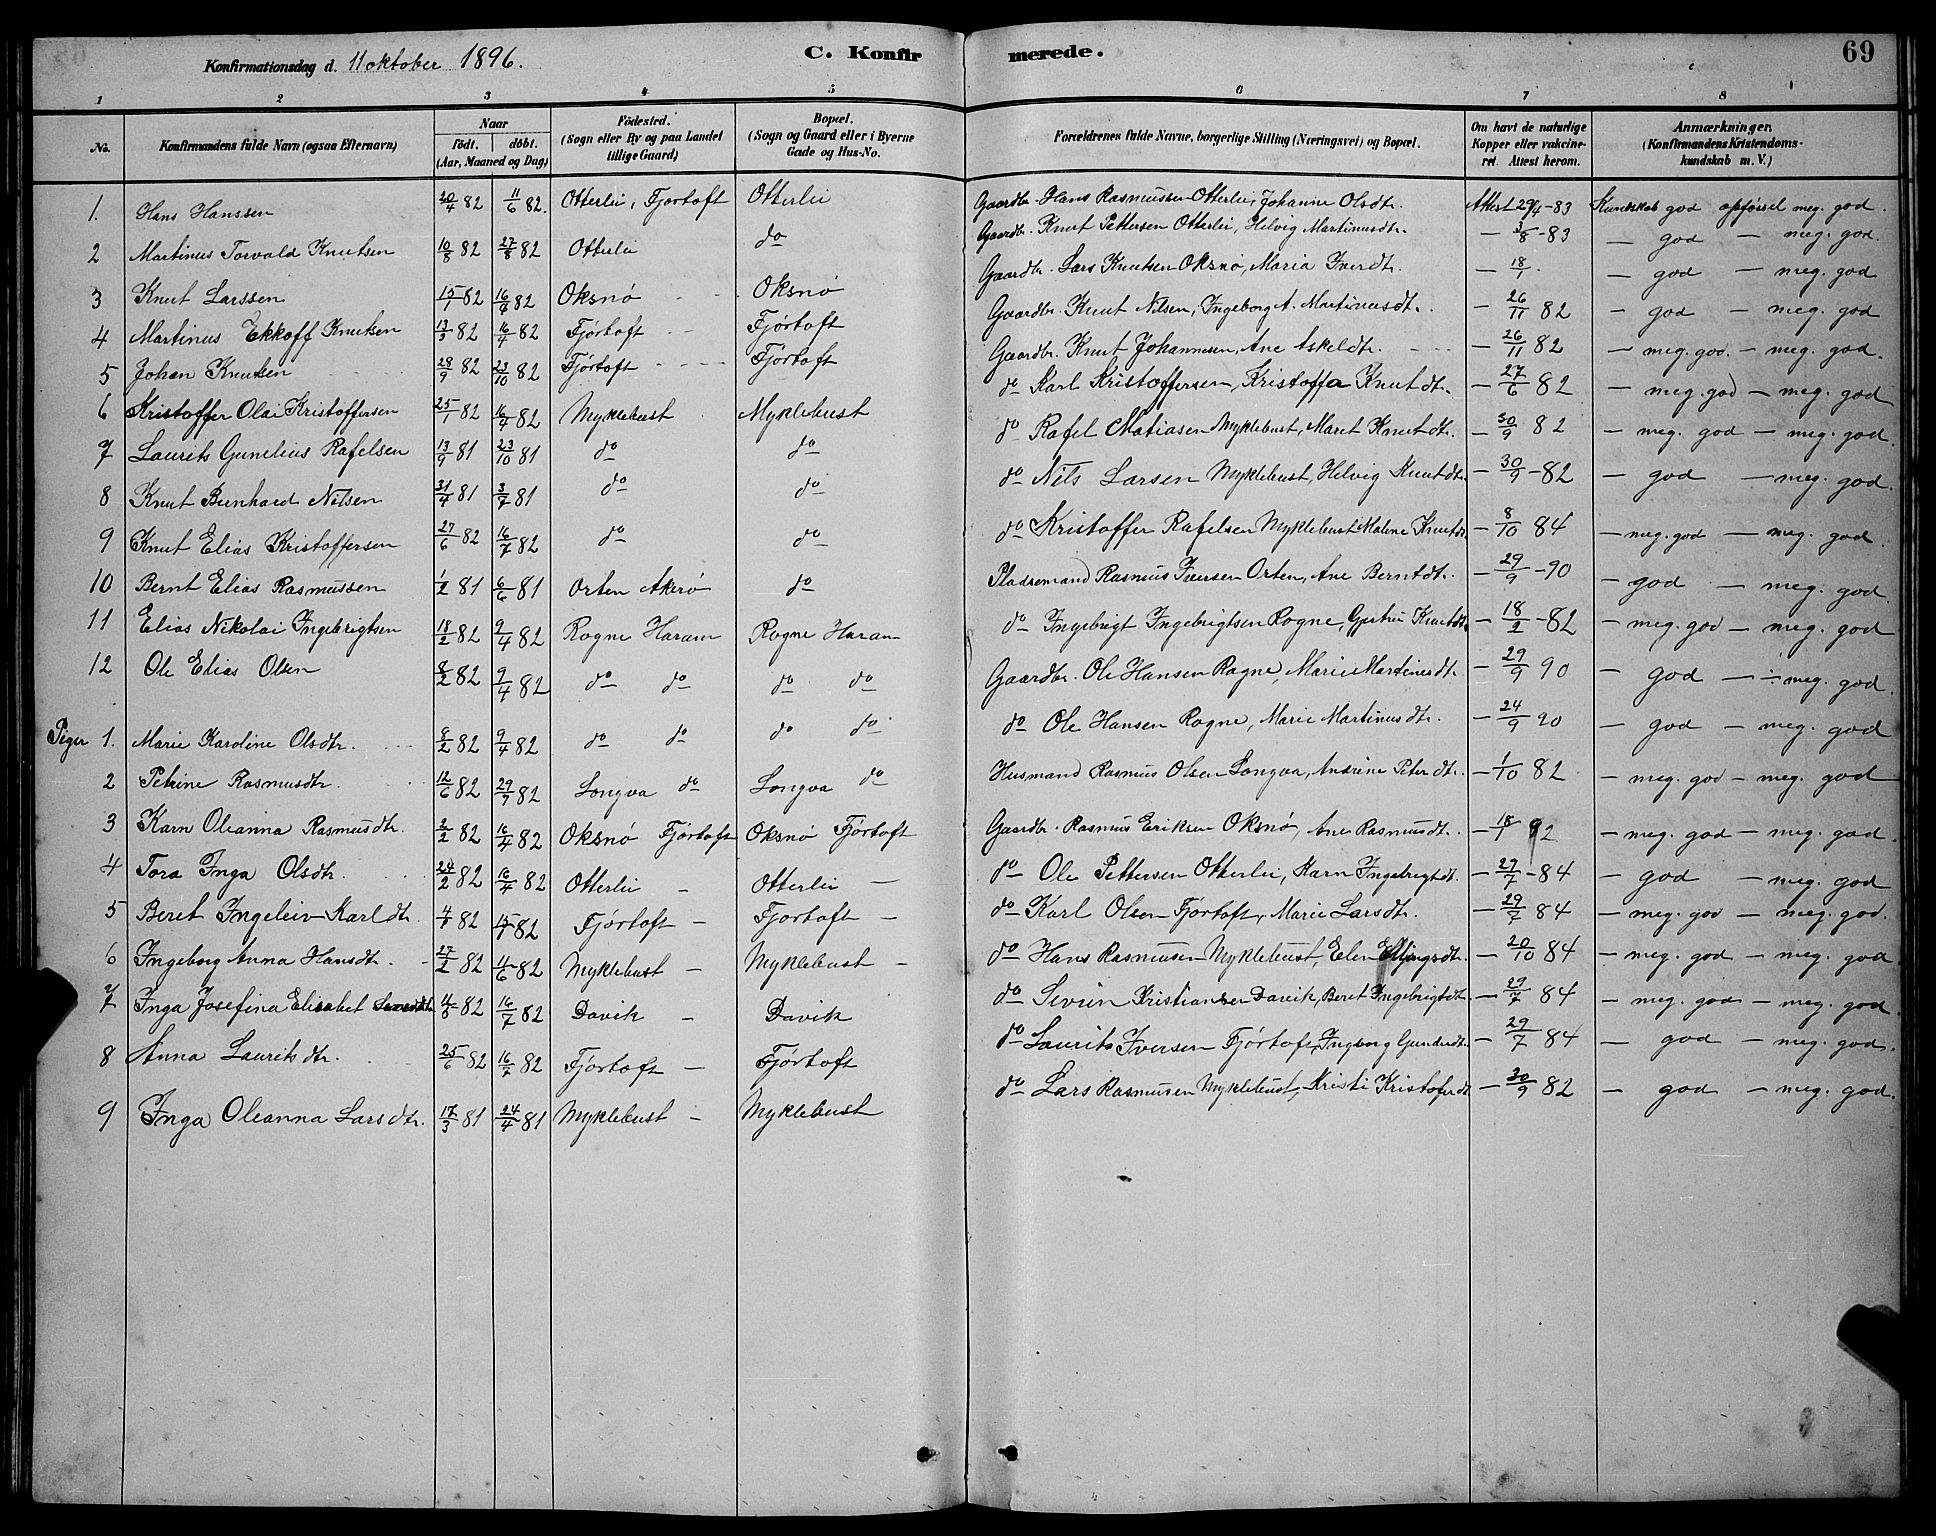 Konfirmationsdag d. 11 oktober 1896.
C. Konfirmerede.
69
1 2 3 4 5 6 7 8
No. Konfirmandens fulde Navn (ogsaa Efternavn) Naar født. døbt. (Aar, Maaned og Dag) Födested. (Sogn eller By og paa Landet tillige Gaard) Bopæl. (Sogn og Gaard eller i Byerne Gade og Hus-No. Forældrenes fulde Navne, borgerlige Stilling (Næringsvei) og Bopæl. Om havt de naturlige Kopper eller vakcineret. Attest herom. Anmærkninger. (Konfirmandens Kristendomskundskab m. V.)
1. Hans Hanssen 20/4 82 11/6 82. Otterlei, Fjørtoft Otterlei Gaardbr. Hans Rasmussen Otterlei, Johanne Olsdt. Attest 29/4-83 Kundskab god opførsel meg. god.
2 Martinus Torvald Knutsen 10/8 82 27/8 82 Otterlei do Gaardbr. Knut Pettersen Otterlei, Helvig Martinusdtr. — 3/8-83 — god — meg. god.
3 Knut Larssen 15/1 82 16/4 82 Oksnø Oksnø Gaardbr. Lars Knutsen Oksnø, Maria Iverdtr. — 18/1. — god — meg. god
4 Martinus Ekkoff Knutsen 13/3 82 16/4 82 Fjörtoft Fjörtoft Gaardbr. Knut Nilsen, Ingeborg A. Martinusdt. — 26/11 82 — god — meg. god
5 Johan Knutsen 28/9 82 23/10 82 Fjörtoft Fjörtoft Gaardbr. Knut Johannesen, Ane Askeldt. — 26/11 82 — meg. god. — meg. god.
6 Kristoffer Olai Kristoffersen 25/1 82 16/4 82 Myklebust Myklebust do Karl Kristoffersen, Kristoffa Knutdt. — 27/6 82 — meg. god — meg. god.
7 Laurits Gunelius Rafelsen 13/9 81 23/10 81 do do do Rafel Matiasen Myklebust, Maret Knutdt. — 30/9 82 — meg. god — meg. god.
8 Knut Bernhard Nilsen 31/4 81 3/7 81 do do do Nils Larsen Myklebust, Helvig Knutdt. — 30/9-82 — god — meg. god.
9 Knut Elias Kristoffersen 27/6 82 16/7 82 do do do Kristoffer Rafelsen Myklebust Malene Knutdt. — 8/10 84 — meg. god — meg. god.
10 Bernt Elias Rasmussen 1/2 81 6/6 81 Orten Akerø do Pladsemand Rasmus Iversen Orten, Ane Berntdt. — 29/9-90 — god — meg. god.
11 Elias Nikolai Ingebrigtsen 18/2 82 9/4 82 Rogne Haram Rogne Haram do Ingebrigt Ingebrigtsen Rogne, Gjertrui Knutdt. — 18/2-82 — meg. god — meg. god.
12 Ole Elias Olsen 8/2 82 9/4 82 do do do do Gaardbr. Ole Hansen Rogne, Marie Martinusdt. — 29/9 90 — god — meg. god.
Piger 1. Marie Karoline Olsdtr. 8/2 82 9/4 82 do do do do do Ole Hansen Rogne, Marie Martinusdtr. — 24/9 90 — god — meg. god
2 Petrine Rasmusdtr. 12/6 82 29/7 82 Longva do Longva do Husmand Rasmus Olsen Longva, Andrine Peterdt. — 1/10 82 — meg. god — meg. god
3 Karn Oleanna Rasmusdtr. 2/2 82 16/4 82 Oksnø Fjörtoft Oksnø Fjörtoft Gaardbr. Rasmus Eriksen Oksnø, Ane Rasmusdt. — 18/1 92 — meg. god — meg. god.
4 Tora Inga Olsdtr. 24/2 82 16/4 82 Otterlei — Otterlei — do Ole Pettersen Otterlei, Karn Ingebrigtdt. — 29/7-84 — god — meg. god
5 Beret Ingeleiv Karldtr. 4/7 82 82 Fjörtoft — Fjortoft — do Karl Olsen Fjortoft, Marie Larsdtr. — 29/7 84 — meg. god — meg. god.
6 Ingeborg Anna Hansdt. 27/2 82 11/6 82 Myklebust — Myklebust — do Hans Rasmusen Myklebust, Elen Ellingsdt. — 20/10 84 — meg. god — meg. god.
7 Inga Josefina Elisabet 82 16/7 82 Davik — Davik do Sevrin Kristiansen Davik, Beret Ingebrigtdt. — 29/7 84 — meg. god — meg. god.
8 Anna Lauritsdtr. 25/6 82 16/7 82 Fjörtoft — Fjörtoft do Laurits Iversen Fjörtoft, Ingborg Gunderdt. — 29/7 84 — god — meg. god.
9 Inga Oleanna Larsdtr. 17/3 81 24/4 81 Myklebust — Myklebust do Lars Rasmusen Myklebust, Kristi Kristoferdt. — 30/9 82 — god — meg. god.